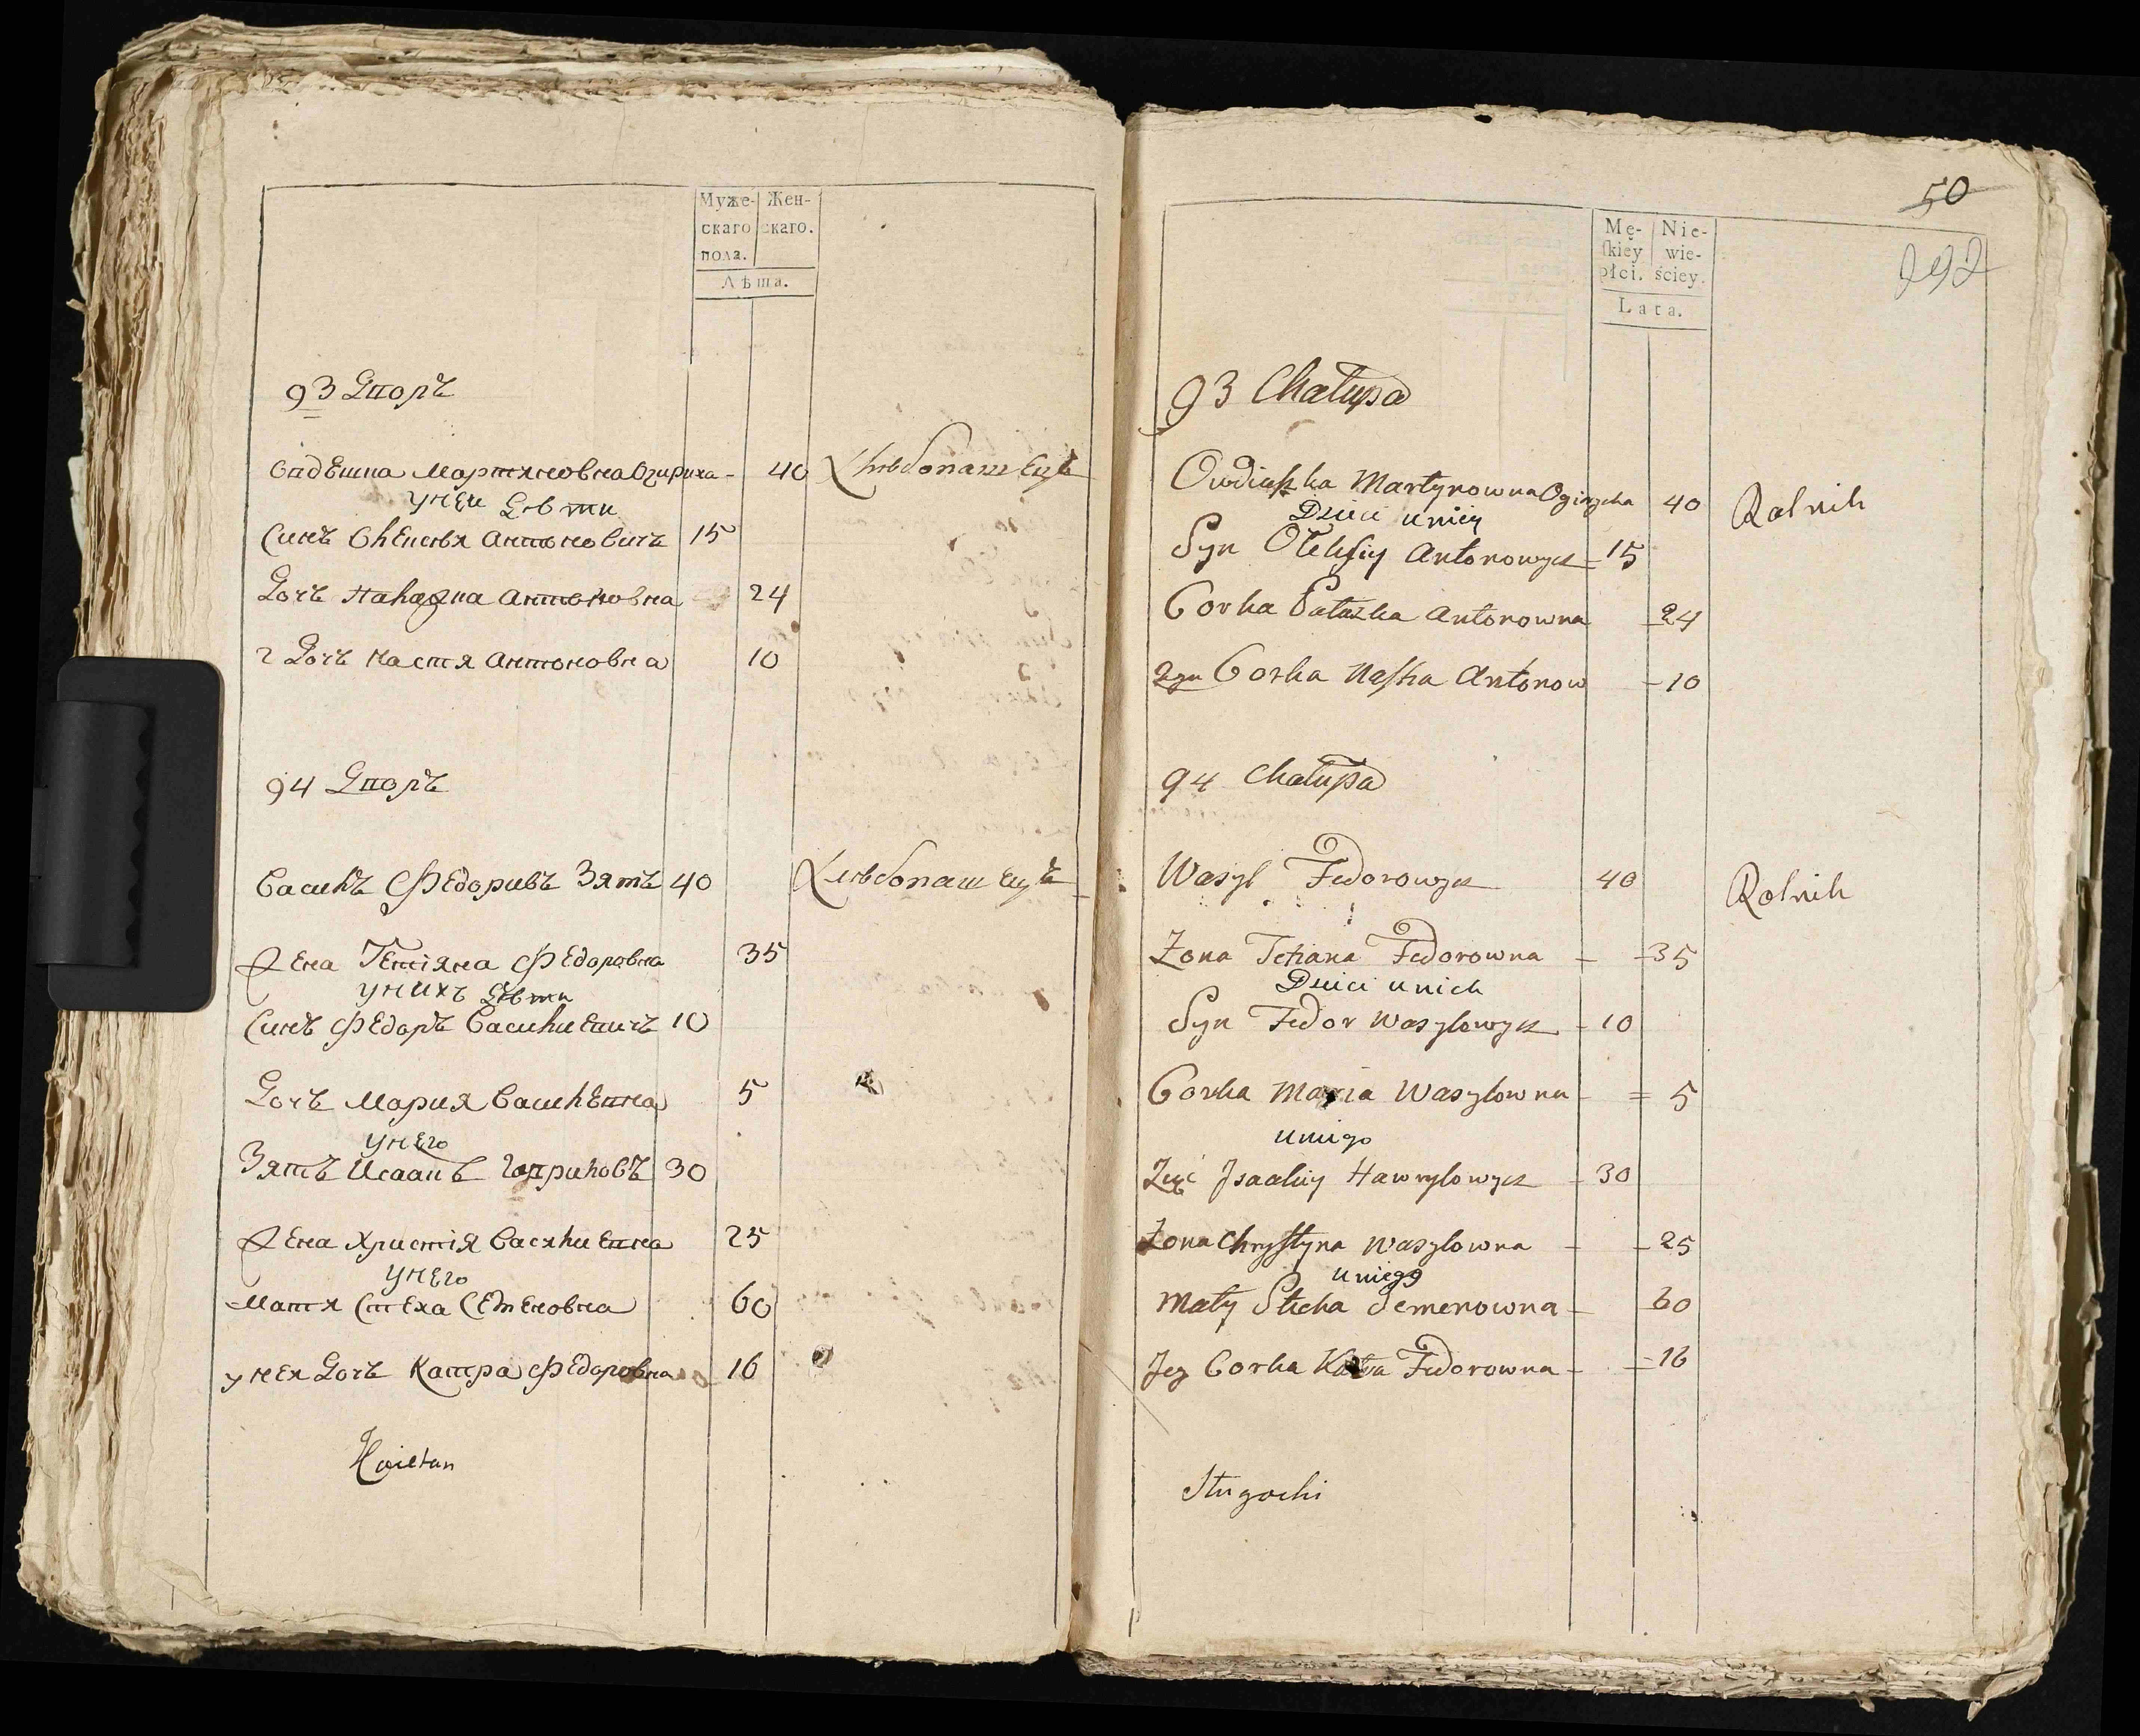 Муже- Жен-
скаго скаго.
пола.
Лѣта.
93 Дворъ
Овдѣшка Мартяновна Огириха - 40 Хлѣбопашецъ
у неи Дѣти
Синъ Олексѣй Антоновичъ 15
Дочъ Палажка Антоновна 24
2 Дочъ Настя Антоновна 10
94 Дворъ
Василъ Федоривъ Зятъ 40 Хлѣбопашецъ
Жена Тетіяна Федоровна 35
у нихъ Дѣти
Синъ Федоръ Василиевичъ 10
Дочъ Мария Василевна 5
у него
Зятъ Исаакъ Гавриловъ 30
Жена Христія Василиевна 25
у него
Матя Стеха Семеновна 60
у нея Дочъ Катра Федоровна 16
50
292
Mę- Nie-
ſkiey wie-
płci. ściey.
Lata.
93 Chałupa
Owdiuszka Martynowna Ogirzcha 40 Rolnik
Dzieci u niey
Syn Ołeksiy Antonowycz - 15
Corka Pałazka Antonowna - 24
2ga Corka Nastia Antonow - 10
94 Chałupa
Wasyl Fedorowycz 40 Rolnik
Żona Tetiana Fedorowna - - 35
Dzieci u nich
Syn Fedor Wasylowycz - 10
Corka Maria Wasylowna - = 5
u niego
Zięć Jsaakiy Hawryłowycz - 30
Żona Chrystyna Wasylowna - - 25
u niego
Maty Stecha Semenowna - 60
Jey Corka Katra Fedorowna - - 16
Sługocki